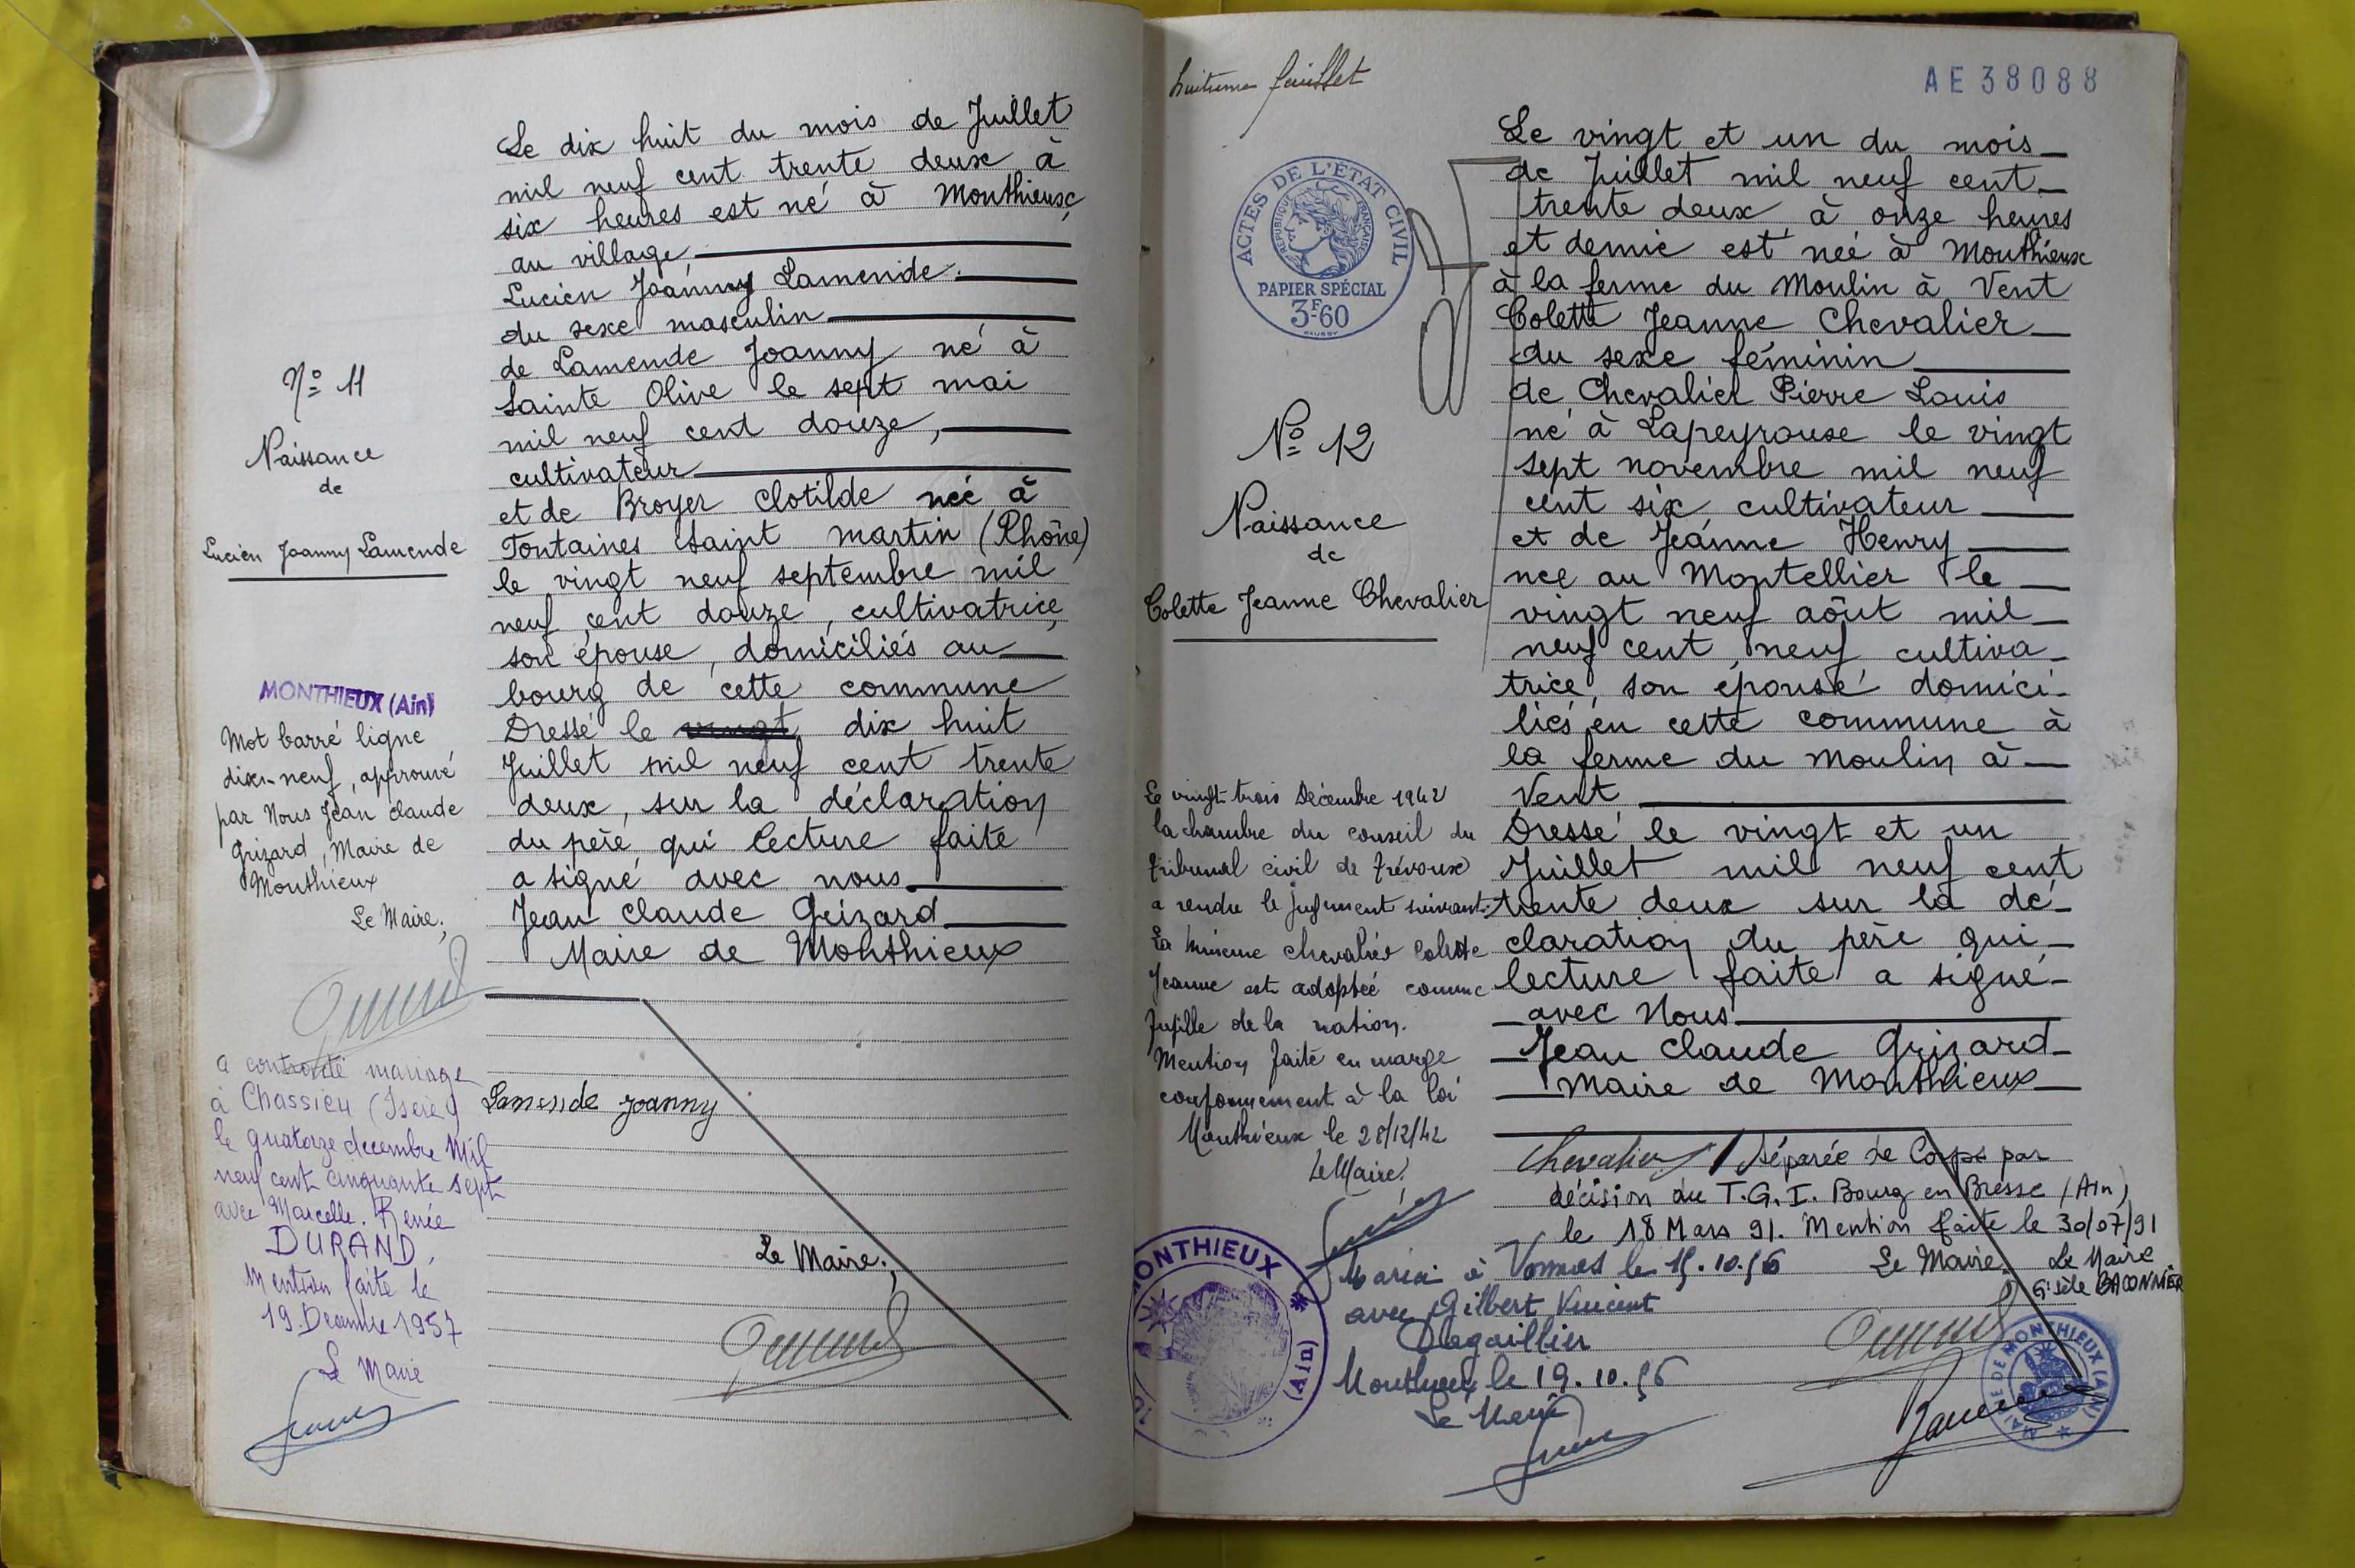 Le dix huit du mois de Juillet
mil neuf cent trente deux à
six heures est né à Monthieux,
au village
Lucien Joanny Lamende.
du sexe masculin
de Lamende Joanny né à
Sainte Olive le sept mai
mil neuf cent douze,
cultivateur
et de Broyer Clotilde née à
Fontaines Saint Martin (Rhône)
le vingt neuf septembre mil
neuf cent douze, cultivatrice,
son épouse, domiciliés au
bourg de cette commune
Dressé le vingt dix huit
Juillet mil neuf cent trente
deux, sur la déclaration
du père, qui lecture faite
a signé avec nous
Jean Claude Grizard
Maire de Monthieux
Lamende Joanny
Le Maire.,
N° 11
Naissance
de
Lucien Joanny Lamende
MONTHIEUX (Ain)
Mot barré ligne
dix-neuf, approuvé
par Nous Jean Claude
Grizard, Maire de
Monthieux
Le Maire,
a contracté mariage
à Chassieu (Isère)
le quatorze decembre Mil
neuf cent cinquante sept
avec Marcelle. Renée
DURAND,
Mention faite le
19. Decembre 1957
Le Maire
huitieme feuillet
AE38088
ACTES DE L'ÉTAT CIVIL
RÉPUBLIQUE FRANÇAISE
PAPIER SPÉCIAL
3F60
N° 12
Naissance
de
Colette Jeanne Chevalier
Le vingt et un du mois
de Juillet mil neuf cent
trente deux à onze heures
et demie est née à Monthieux
à la ferme du Moulin à Vent
Colette Jeanne Chevalier
du sexe féminin
de Chevalier Pierre Louis
né à Lapeyrouse le vingt
sept novembre mil neuf
cent six, cultivateur
et de Jeanne Henry
née au Montellier le
vingt neuf août mil
neuf cent neuf cultiva-
trice, son épouse domici-
liés en cette commune à
la ferme du Moulin à
Vent
Dressé le vingt et un
Juillet mil neuf cent
trente deux sur la dé-
claration du père qui
lecture faite a signé
avec Nous
Jean Claude Grizard
Maire de Monthieux
Chevalier
Séparée de Corps par
décision du T.G.I. Bourg en Bresse (Ain)
le 18 Mars 91. Mention faite le 30/07/91
Le Maire.
Le Maire
Gisèle BACONNIER
MAIRIE DE MONTHIEUX (AIN)
Le vingt-trois Décembre 1942
la chambre du conseil du
tribunal civil de Trévoux
a rendu le jugement suivant:
La mineure Chevalier Colette
Jeanne est adoptée comme
pupille de la nation.
Mention faite en marge
conformément à la loi
Monthieux le 28/12/42
Le Maire,
MONTHIEUX
(Ain)
Mariée à Vonnas le 15.10.56
avec Gilbert Vincent
Dagaillier
Monthieux le 19.10.56
Le Maire